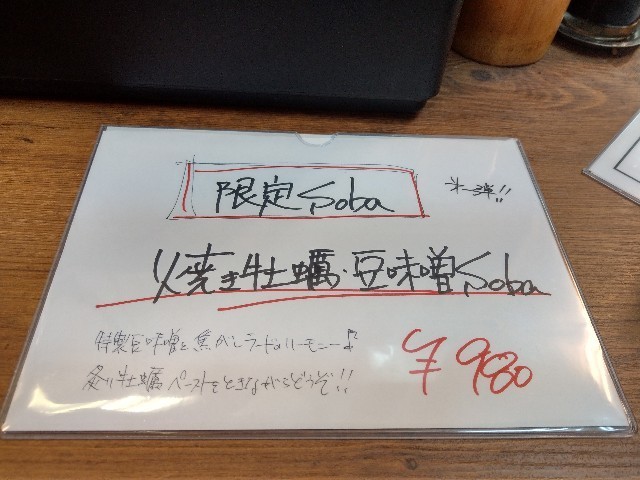 限定Soba
第一弾!!
焼き牡蠣・豆味噌Soba
特製豆味噌と焦がしラードのハーモニー♪
炙り牡蠣ペーストをときながらどうぞ!!
¥980